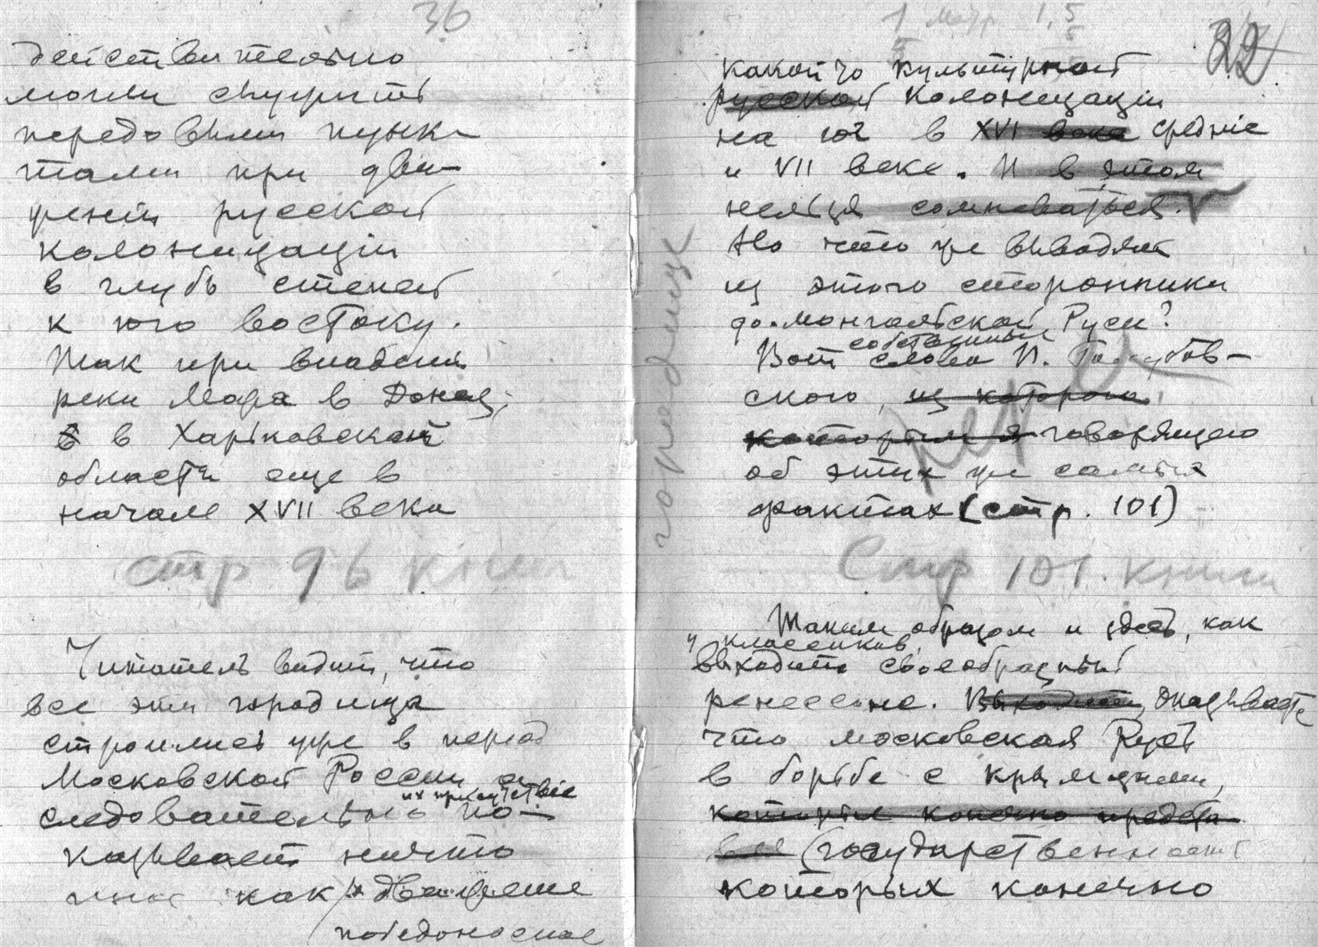 36
действительно
могли служить
передовыми пунк-
тами при дви-
жении русской
колонизации
в глубь степей
к юго востоку.
Так при впадении
реки Можа в Донец,
в Харьковской
области еще в
начале XVII века
стр 96 книги
Читатель видит, что
все эти городища
строились уже в период
Московской России и
их присутствие
следовательно по-
казывает ничто
иное как движение
победоносное
городищ
32
какой то культурной
русской колонизации
на юг в XVI веке средние
и VII веке. И в этом
нельзя сомневаться.
Но что же выводят
из этого сторонники
до-монгольской Руси?
собственные
Вот слова П. Голубов-
ского, из которого
которым я говорящего
об этих же самых
фактах (стр. 101)
Стр 101. книги
Таким образом и здесь, как
у классиков,
выходит своеобразный
ренессанс. Выходит, оказывается
что московская Русь
в борьбе с крымцами,
которые конечно представ
(государственность
которых конечно